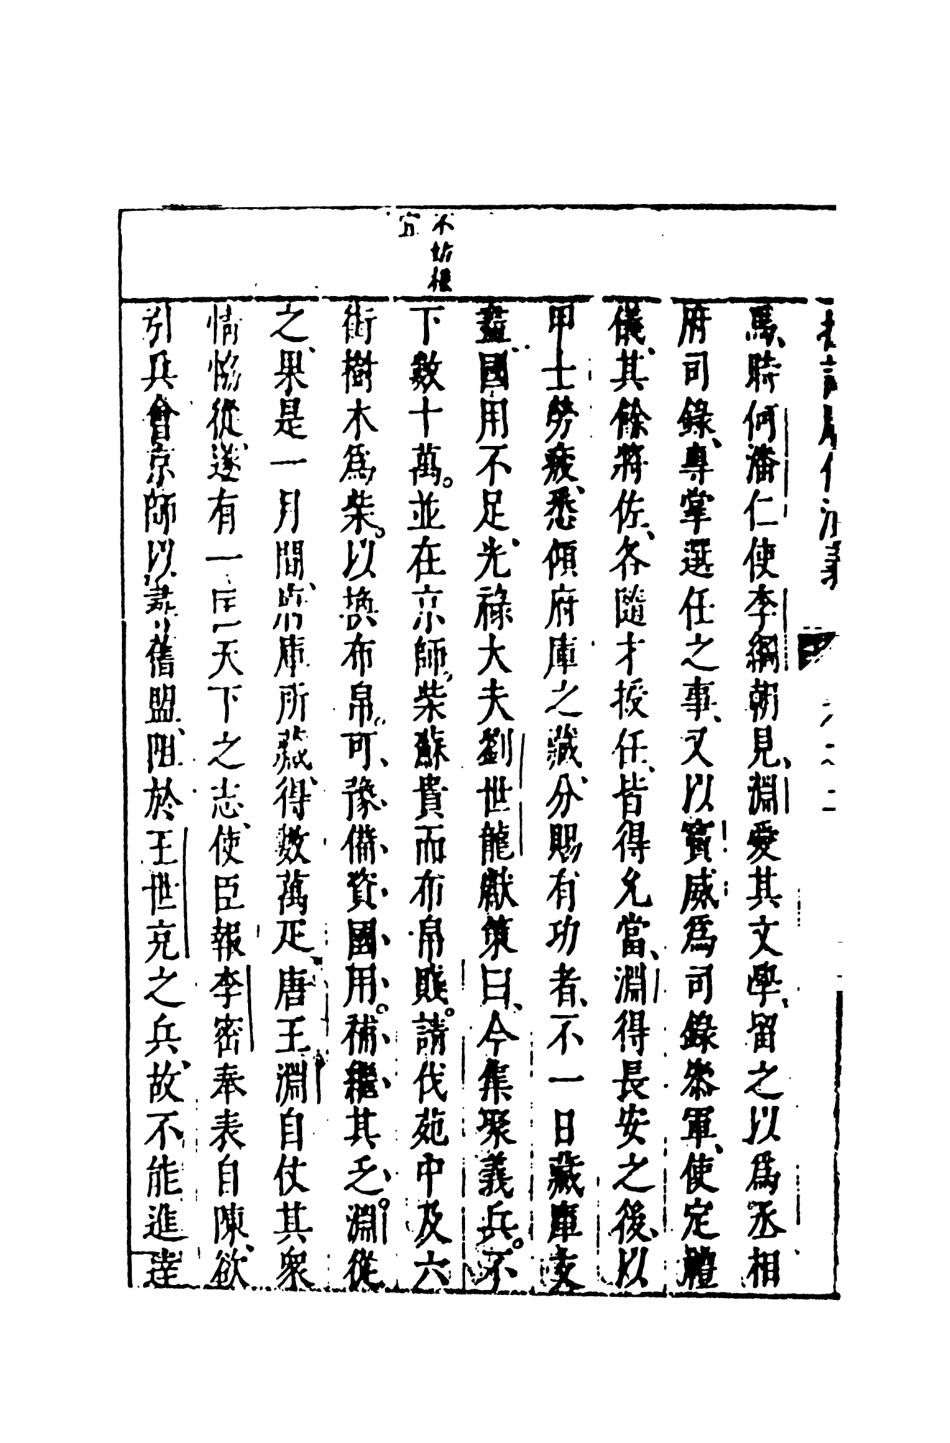 馬、時何潘仁使李綱朝見、淵愛其文學、留之以爲丞相
府司錄、專掌選任之事、又以竇威爲司錄叅軍、使定禮
儀、其餘將佐、各隨才授任、皆得允當、淵得長安之後、以
甲士勞疲、悉傾府庫之藏、分賜有功者、不一日藏庫支
盡、國用不足、光祿大夫劉世龍獻策曰、今集聚義兵。不
下數十萬。並在京師、柴蘇貴而布帛賤。請伐苑中及六
街樹木爲柴。以換布帛。可豫備資國用。補繼其乏。淵從
之、果是一月間、庫所藏、得數萬疋、唐王淵自仗其衆
情恊從、遂有一匡天下之志、使臣報李密奉表自陳、欲
引兵會京師以尋舊盟、阻於王世充之兵、故不能進達
不妨權
宜